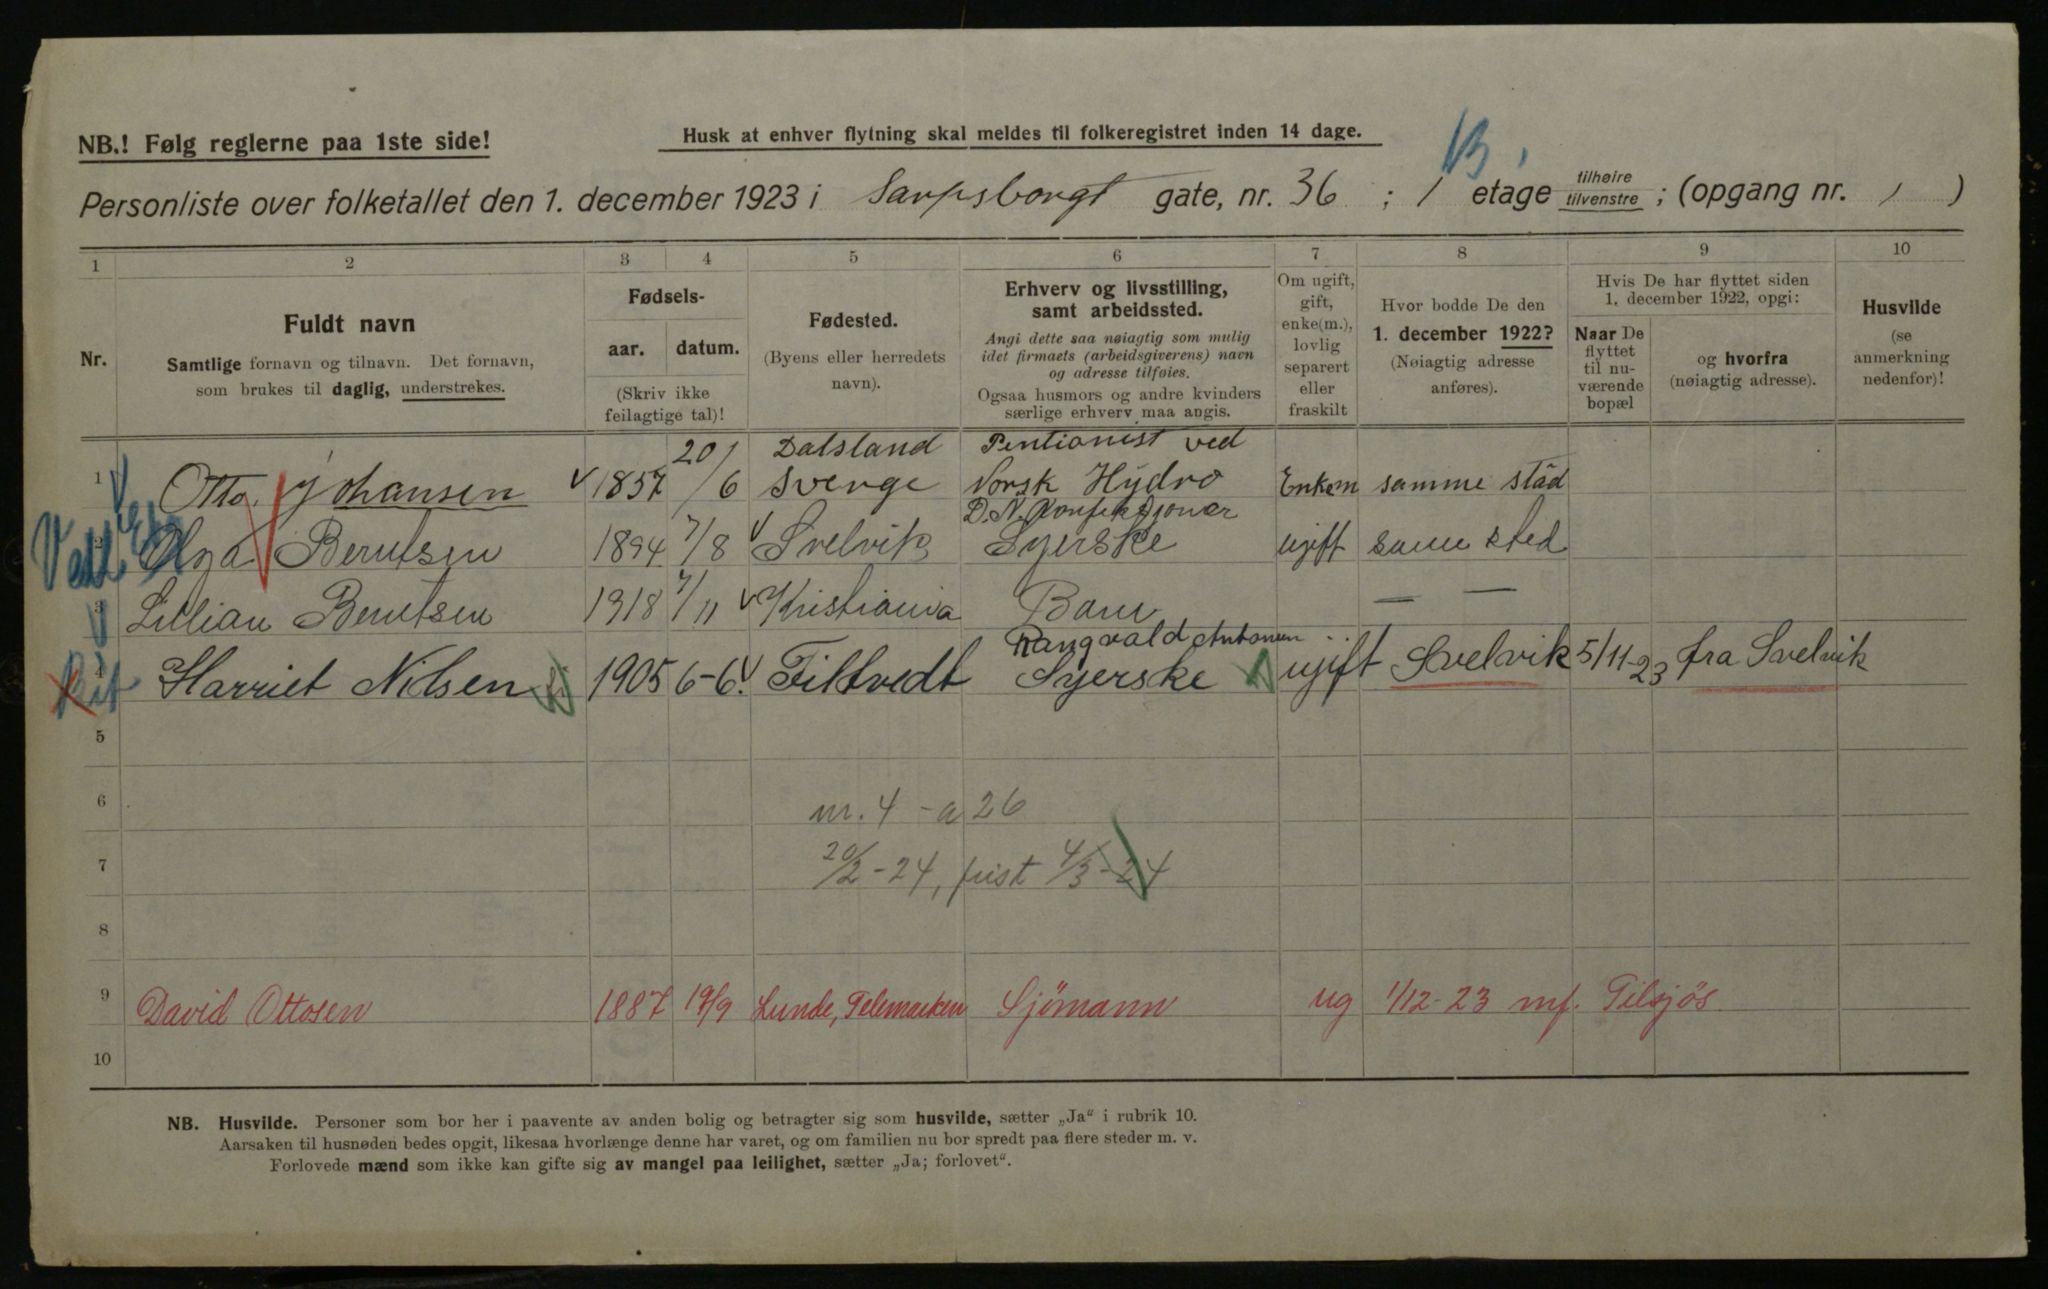 NB.! Følg reglerne paa 1ste side!
Husk at enhver flytning skal meldes til folkeregistret inden 14 dage.
B,
Personliste over folketallet den 1. december 1923 i Sarpsborgt gate, nr. 36 ; 1 etage tilhøire tilvenstre ; (opgang nr. 1 )
1 2 3 4 5 6 7 8 9 10
Nr.
Fuldt navn
Samtlige fornavn og tilnavn. Det fornavn,
som brukes til daglig, understrekes.
Fødsels-
aar. datum.
(Skriv ikke
feilagtige tal)!
Fødested.
(Byens eller herredets
navn).
Erhverv og livsstilling,
samt arbeidssted.
Angi dette saa nøiagtig som mulig
idet firmaets (arbeidsgiverens) navn
og adresse tilføies.
Ogsaa husmors og andre kvinders
særlige erhverv maa angis.
Om ugift,
gift,
enke(m.),
lovlig
separert
eller
fraskilt
Hvor bodde De den
1. december 1922?
(Nøiagtig adresse
anføres).
Hvis De har flyttet siden
1. december 1922, opgi:
Naar De
flyttet
til nu-
værende
bopæl
og hvorfra
(nøiagtig adresse).
Husvilde
(se
anmerkning
nedenfor)!
20/ Dalsland Pentionist ved
1 Otto Johansen 1857 /6 Sverge Norsk Hydro Enkem samme städ
D. N. Konfeksjoner
2 Olga Berntsen 1894 7/8 Svelvik Syerske ugift samme sted
3 Lillian Berntsen 1918 7/11 Kristiania Barn — —
Rangvald Antonsen
4 Harriet Nilsen 1905 6-6. Filtvedt Syerske ugift Svelvik 5/11-23 fra Svelvik
5
6 nr. 4 - a 26
7 20/2-24, frist 4/3-24
8
9 David Ottosen 1887 19/9 Lunde, Telemarken Sjømann ug 1/12-23 mf. Tilsjøs
10
NB. Husvilde. Personer som bor her i paavente av anden bolig og betragter sig som husvilde, sætter „Ja“ i rubrik 10.
Aarsaken til husnøden bedes opgit, likesaa hvorlænge denne har varet, og om familien nu bor spredt paa flere steder m. v.
Forlovede mænd som ikke kan gifte sig av mangel paa leilighet, sætter „Ja; forlovet“.